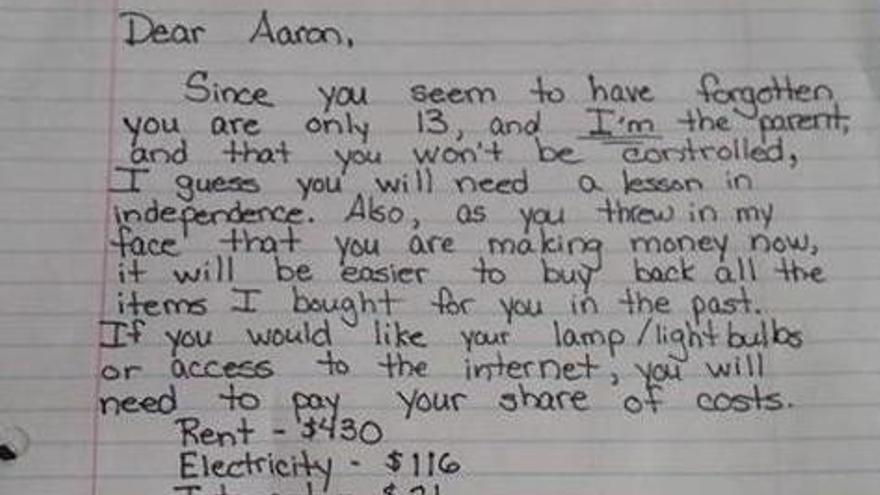 Dear Aaron,
Since you seem to have forgotten
you are only 13, and I'm the parent,
and that you won't be controlled,
I guess you will need a lesson in
independence. Also, as you threw in my
face that you are making money now,
it will be easier to buy back all the
items I bought for you in the past.
If you would like your lamp/lightbulbs
or access to the internet, you will
need to pay your share of costs.
Rent - $430
Electricity - $116